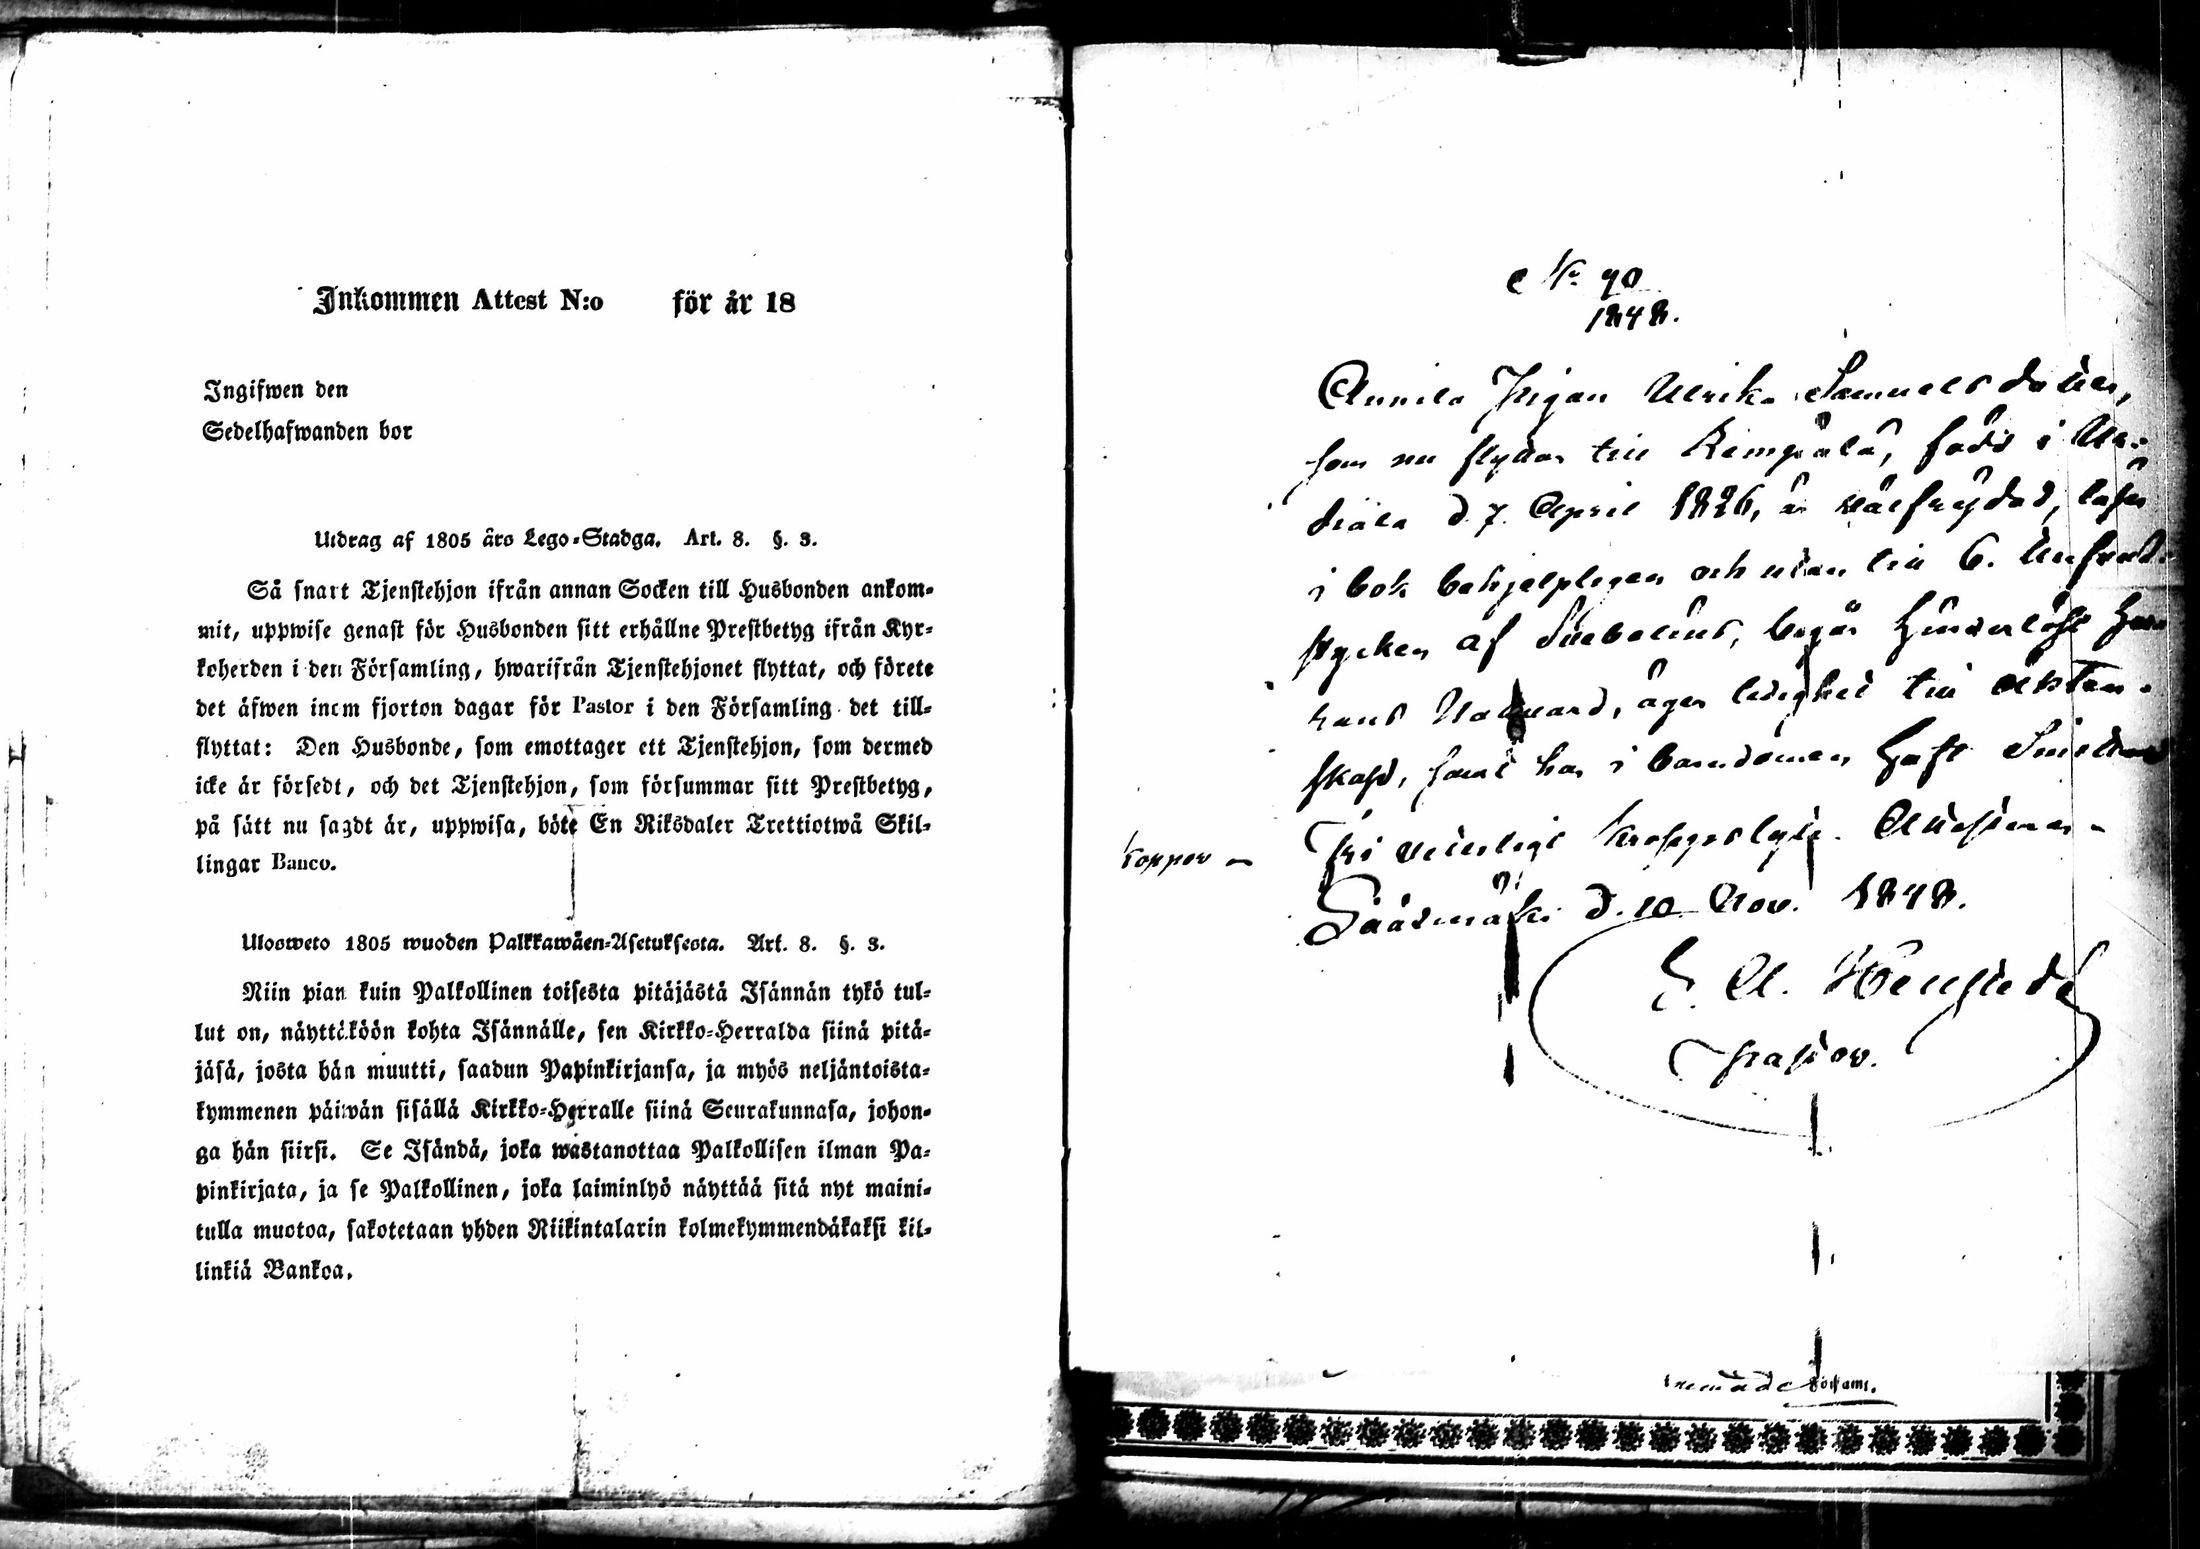 Inkommen Attest N:o för år 18
Ingifwen den
Sedelhafwanden bor
Utdrag af 1805 års Lego-Stadga. Art. 8. §. 3.
Så snart Tjenstehjon ifrån annan Socken till Husbonden ankom-
mit, uppwise genast för Husbonden sitt erhållne Prestbetyg ifrån Kyr-
koherden i den Församling, hwarifrån Tjenstehjonet flyttat, och förete
det äfwen inom fjorton dagar för Pastor i den Församling det till-
flyttat: Den Husbonde, som emottager ett Tjenstehjon, som dermed
icke är försedt, och det Tjenstehjon, som försummar sitt Prestbetyg,
på sätt nu sagdt är, uppwisa, böte En Riksdaler Trettiotwå Skil-
lingar Banco.
Ulosweto 1805 wuoden Palkkawäen-Asetuksesta. Art. 8. §. 3.
Niin pian kuin Palkollinen toisesta pitäjästä Isännän tykö tul-
lut on, näyttäköön kohta Isännälle, sen Kirkko-Herralda siinä pitä-
jäsä, josta hän muutti, saadun Papinkirjansa, ja myös neljäntoista-
kymmenen päiwän sisällä Kirkko-Herralle siinä Seurakunnasa, johon-
ga hän siirsi. Se Isändä, joka wastanottaa Palkollisen ilman Pa-
pinkirjata, ja se Palkollinen, joka laiminlyö näyttää sitä nyt maini-
tulla muotoa, sakotetaan yhden Riikintalarin kolmekymmendäkaksi kil-
linkiä Bankoa.
N:o 90
1848.
Pigan Ulrika Samuelsdotter,
som nu flyttar till Kempälä, född i Ur-
diala d. 7 April 1826, är välfrejdad, läser
i bok behjelpligen och utan till 6. Hufvud-
stycken af Svebelius, begår Hinderlöst Her-
rans Nattvard, äger ledighet till ächten-
skap, samt har i barndomen haft
koppor – Attesterar
Sääxmäki d. 10 Nov. 1848.
Pastor.